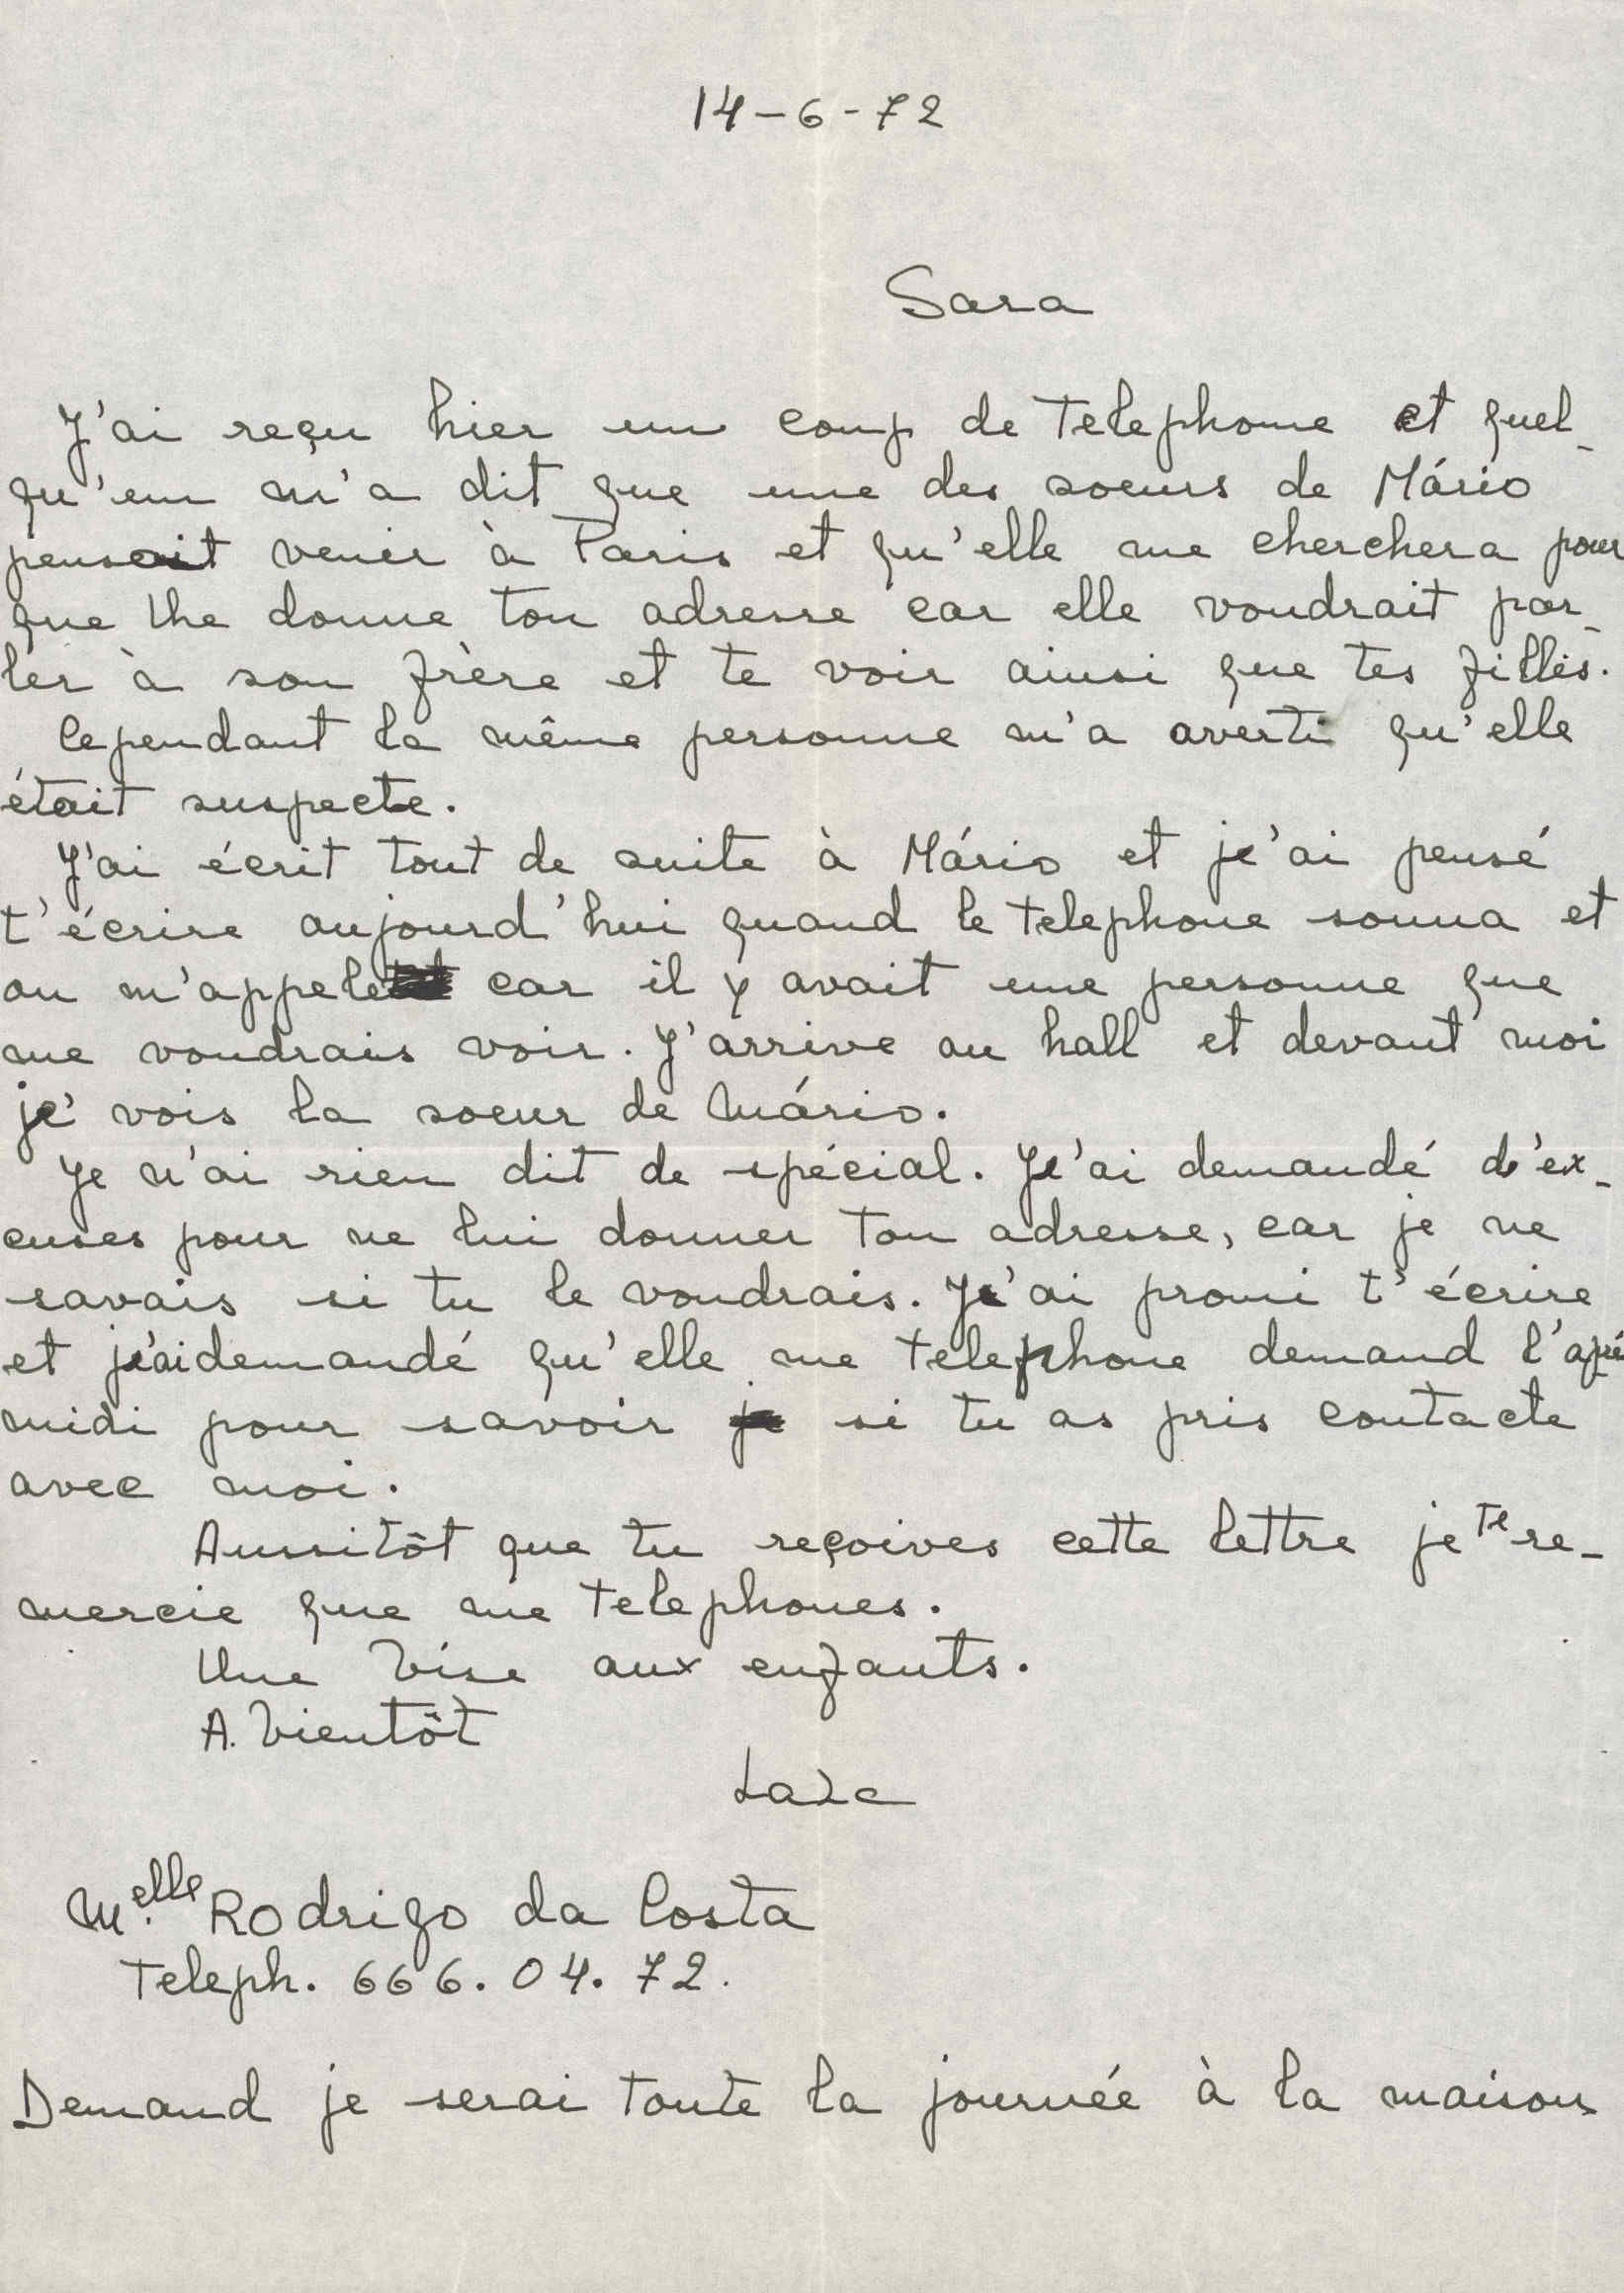 14-6-72
Sara
J'ai reçu hier un coup de telephone et quel-
qu'un m'a dit que une des soeurs de Mário
pensait venir à Paris et qu'elle me cherchera pour
que lhe donne ton adresse car elle voudrait par-
ler à son frère et te voir ainsi que tes filles.
Cependant la même personne m'a averti qu'elle
était suspecte.
J'ai écrit tout de suite à Mário et je'ai pensé
t'écrire aujourd'hui quand le telephone sonna et
on m'appele car il y avait une personne que
me voudrais voir. J'arrive au hall et devant moi
je vois la soeur de Mário.
Je n'ai rien dit de spécial. Je'ai demandé d'ex-
cuses pour ne lui donner ton adresse, car je ne
savais si tu le voudrais. Je'ai promi t'écrire
et j'ai demandé qu'elle me telephone demand l'aprè
midi pour savoir je si tu as pris contacte
avec moi.
Aussitôt que tu reçoives cette lettre je te re-
mercie que me telephones.
Une bise aux enfants.
A. bientôt
M.elle Rodrigo da Costa
Teleph. 666.04.72.
Demand je serai toute la journée à la maison